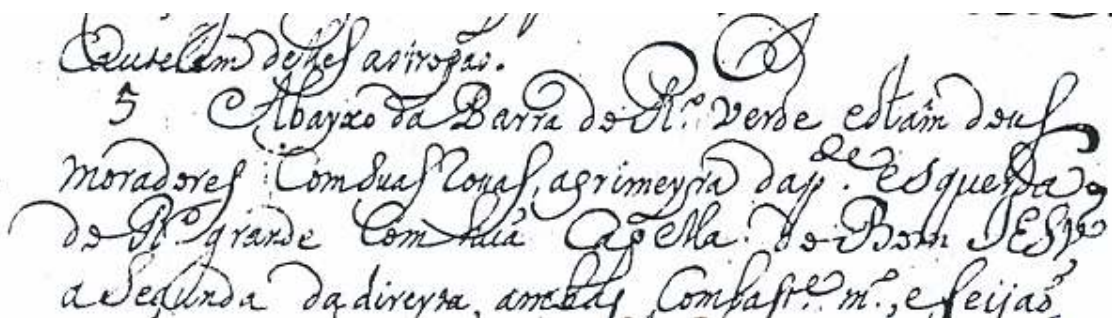 Cautelam delles as tropas.
5 Abayxo da Barra do R.º verde estam dous
moradores Com duas Rossas, a primeyra da p.de esquerda
do R.º grande Com huá Capella do Bom JESV
a Segunda da direyta, ambas Com bast.e m.º, e feijaó